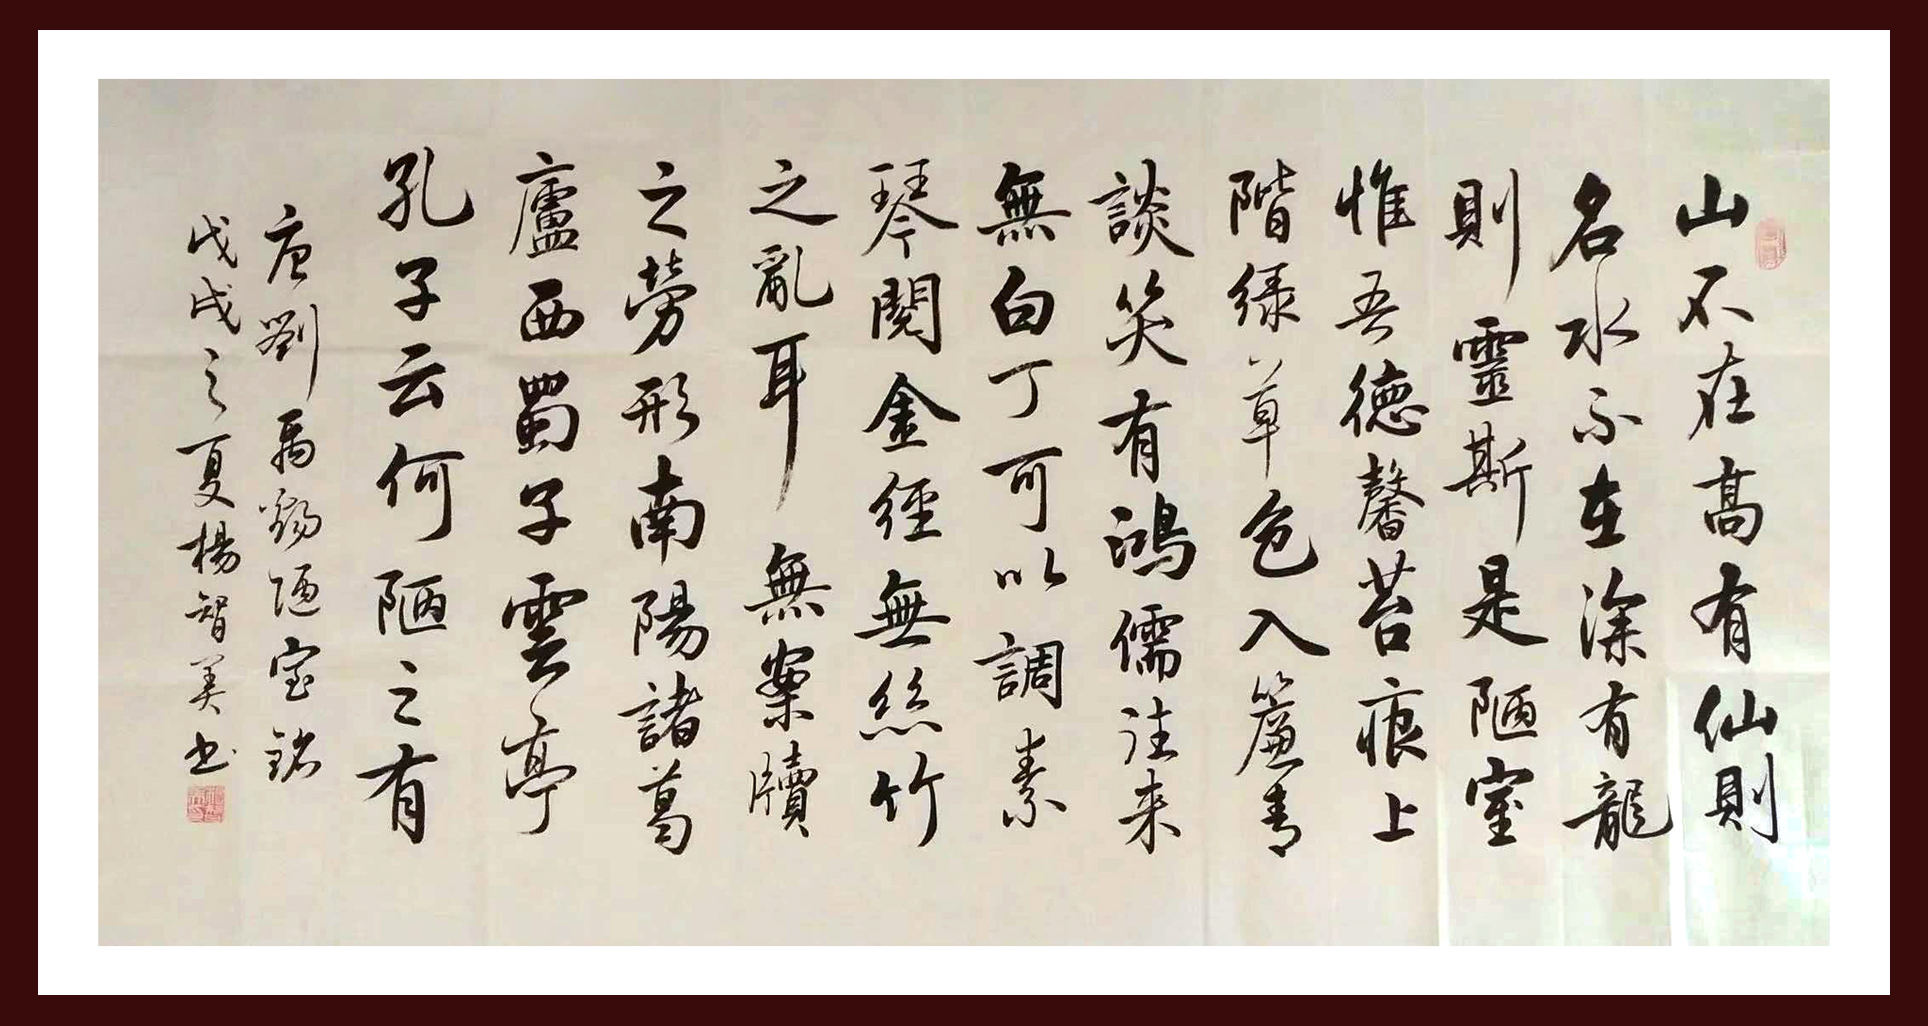 山不在高有仙則
名水不在深有龍
則靈斯是陋室
惟吾德馨苔痕上
階緑草色入簾青
談笑有鴻儒往来
無白丁可以調素
琴閱金經無絲竹
之亂耳無案牘
之勞形南陽諸葛
廬西蜀子雲亭
孔子云何陋之有
唐劉禹錫陋室銘
戊戌之夏楊智美书